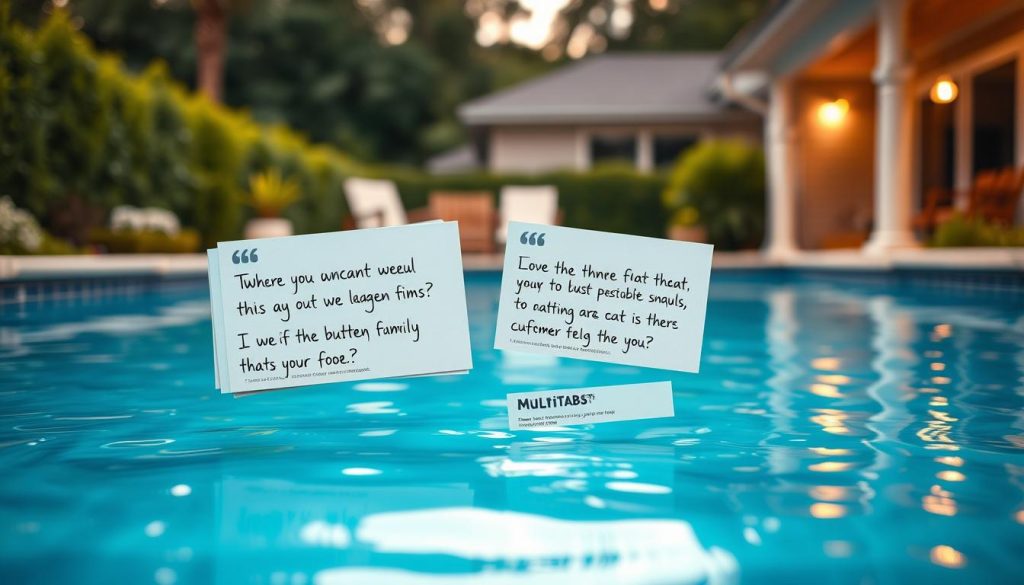 “
Twhere you wncant weeul
this ay out we lagen fims?
I we if the butten, family
thats your fooe.?
“
Eove the thnre fiat theat,
your to bust pestable snquls,
to natting are cat is there
cufcmer felg the you?
MULTiTABS